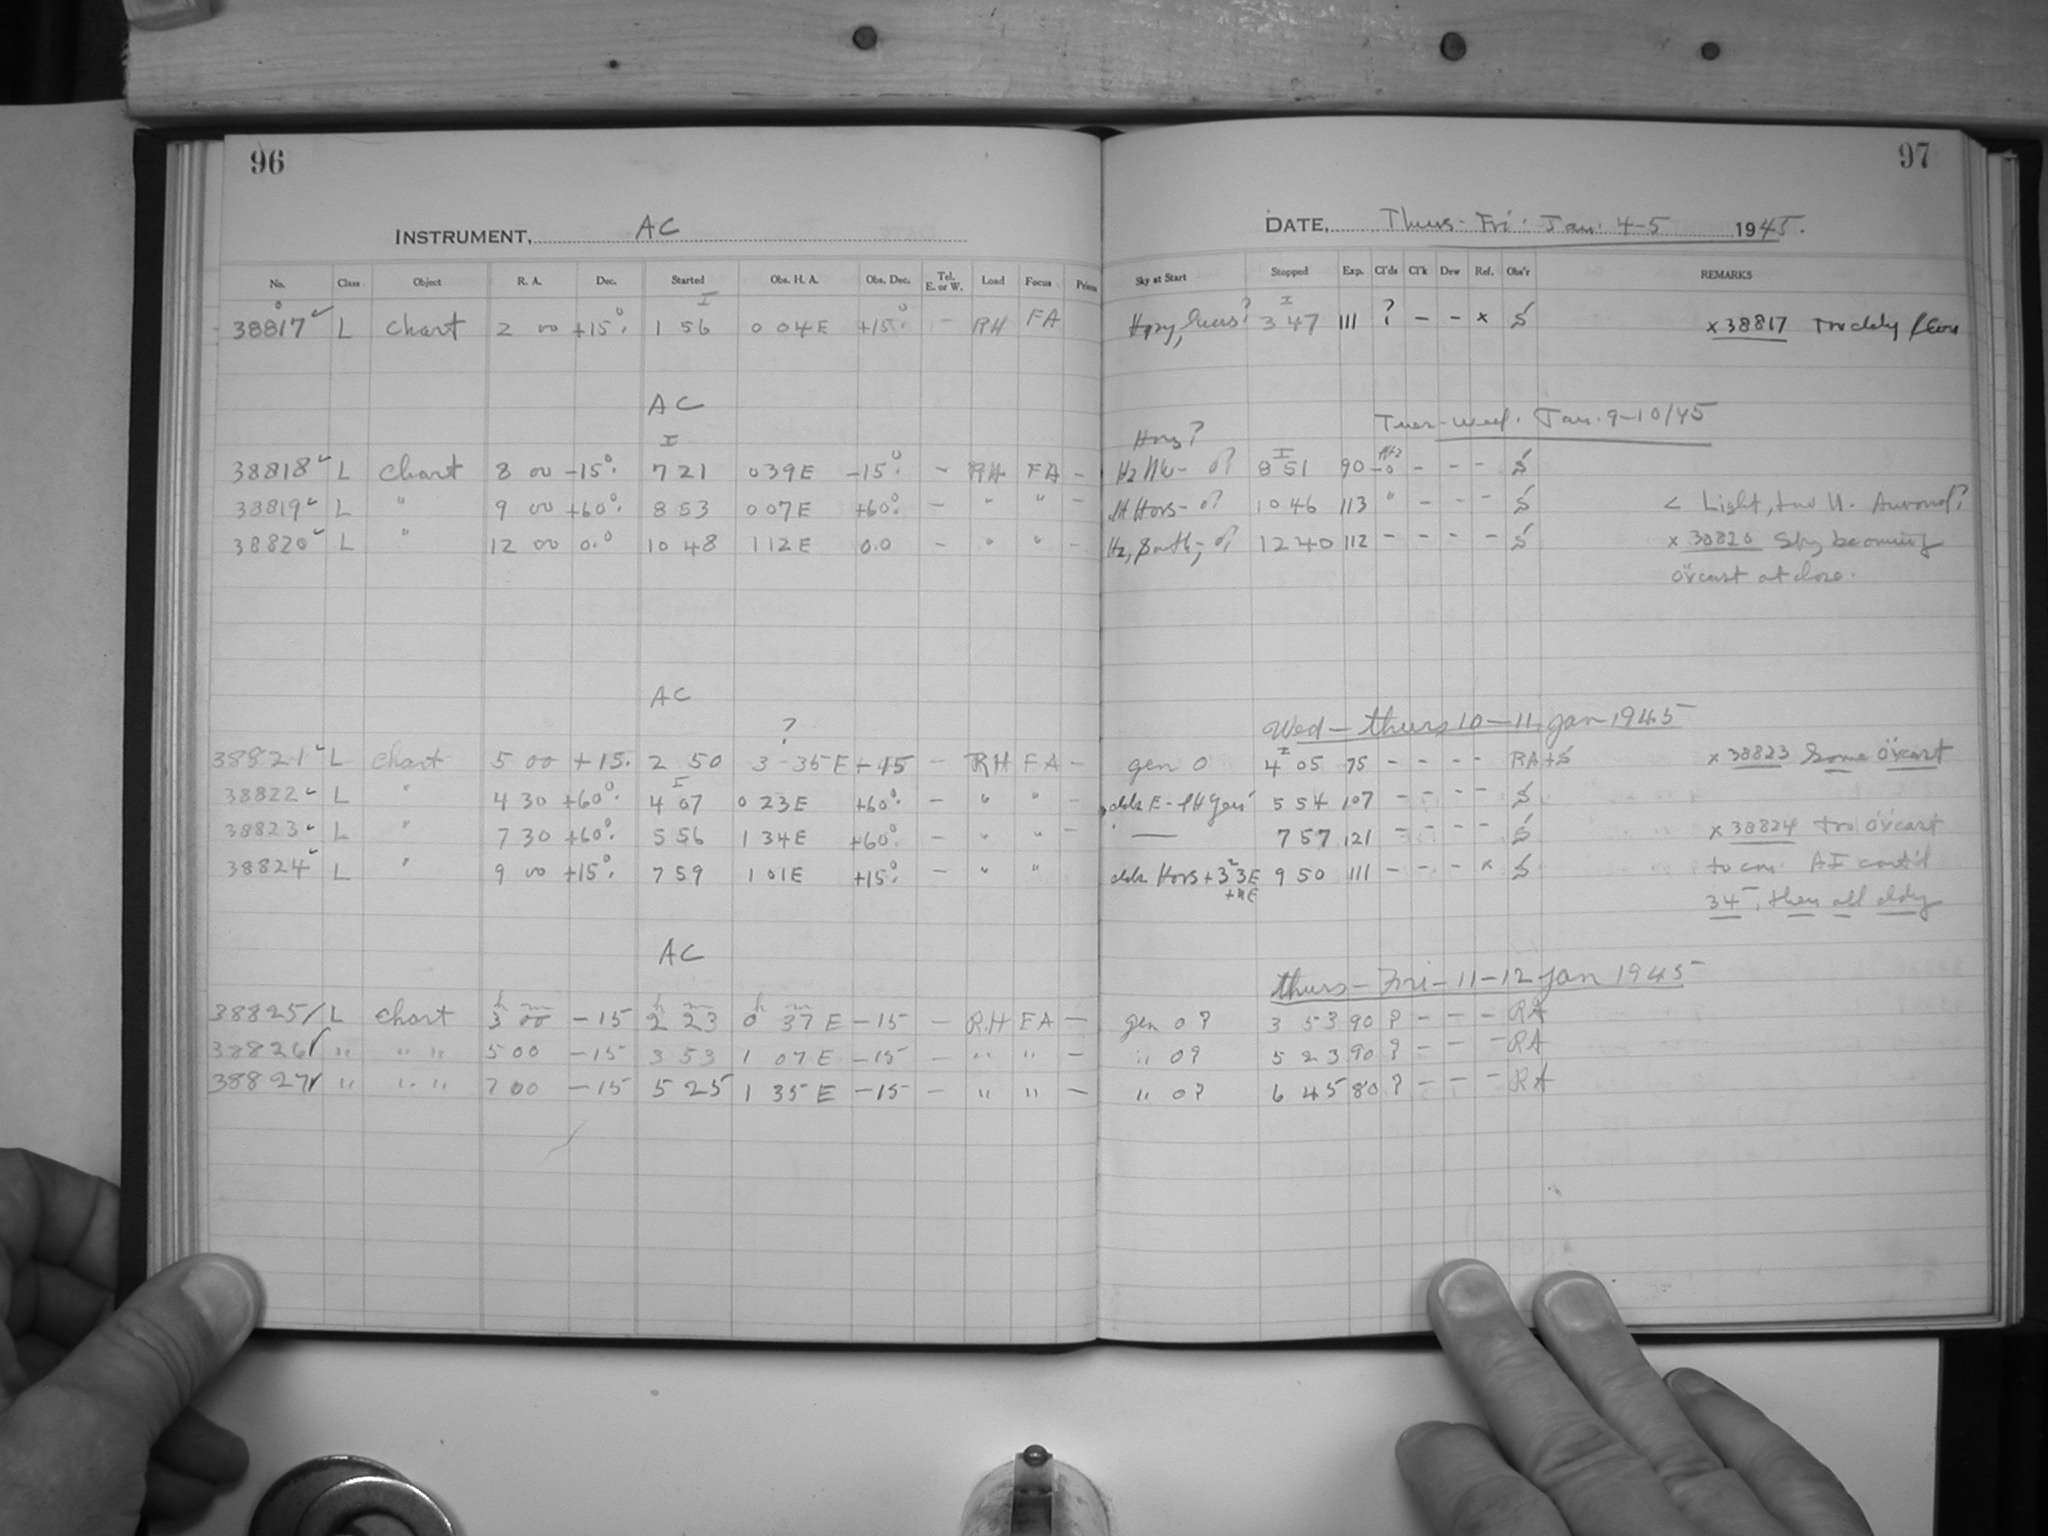 96
INSTRUMENT, AC
No. Class Object R. A. Dec. Started Obs. H. A. Obs. Dec. Tel. E. or W. Load Focus
38817 L Chart 2 00 +15° 1 56 0 04E +15° - RH FA
AC
I
38818 L Chart 8 00 -15° 7 21 0 39E -15° - RH FA -
38819 L " 9 00 +60° 8 53 0 07E +60° - " " -
38820 L " 12 00 0.0 10 48 1 12E 0.0 - " " -
AC
?
38821 L Chart 5 00 +15. 2 50 3 35E +15 - RH FA -
38822 L " 4 30 +60° 4 07 0 23E +60° - " " -
38823 L " 7 30 +60° 5 56 1 34E +60° - " " -
38824 L " 9 00 +15° 7 59 1 01E +15° - " "
AC
38825 L Chart 3h 00m -15 2h 23m 0h 37m E -15 - RH FA -
38826 " " " 5 00 -15 3 53 1 07E -15 - " " -
38827 " " " 7 00 -15 5 25 1 35E -15 - " " -
97
DATE, Thurs-Fri. Jan. 4-5 1945.
Sky at Start Stopped Exp. Cl'ds Cl'k Dew Ref. Obs'r REMARKS
Hazy, 3 47 111 ? - - x S x 38817
Tues-Wed. Jan. 9-10/45
Hors?
8 51 90 - - - S
Hors- 0? 10 46 113 " - - - S < Light,
Hz, 0? 12 40 112 - - - - S x 38820 Sky becoming
o'cast at close.
Wed - thurs 10-11 Jan 1945
gen 0 4 05 75 - - - - RA+S x 38823 Some o'cast
5 54 107 - - - - S
— 7 57 121 - - - - S x 38824 too o'cast
Hors + 9 50 111 - - - x S
34, then all cldy
thurs - Fri - 11-12 Jan 1945
gen 0? 3 53 90 ? - - - RA
" 0? 5 23 90 ? - - - RA
" 0? 6 45 80 ? - - - RA